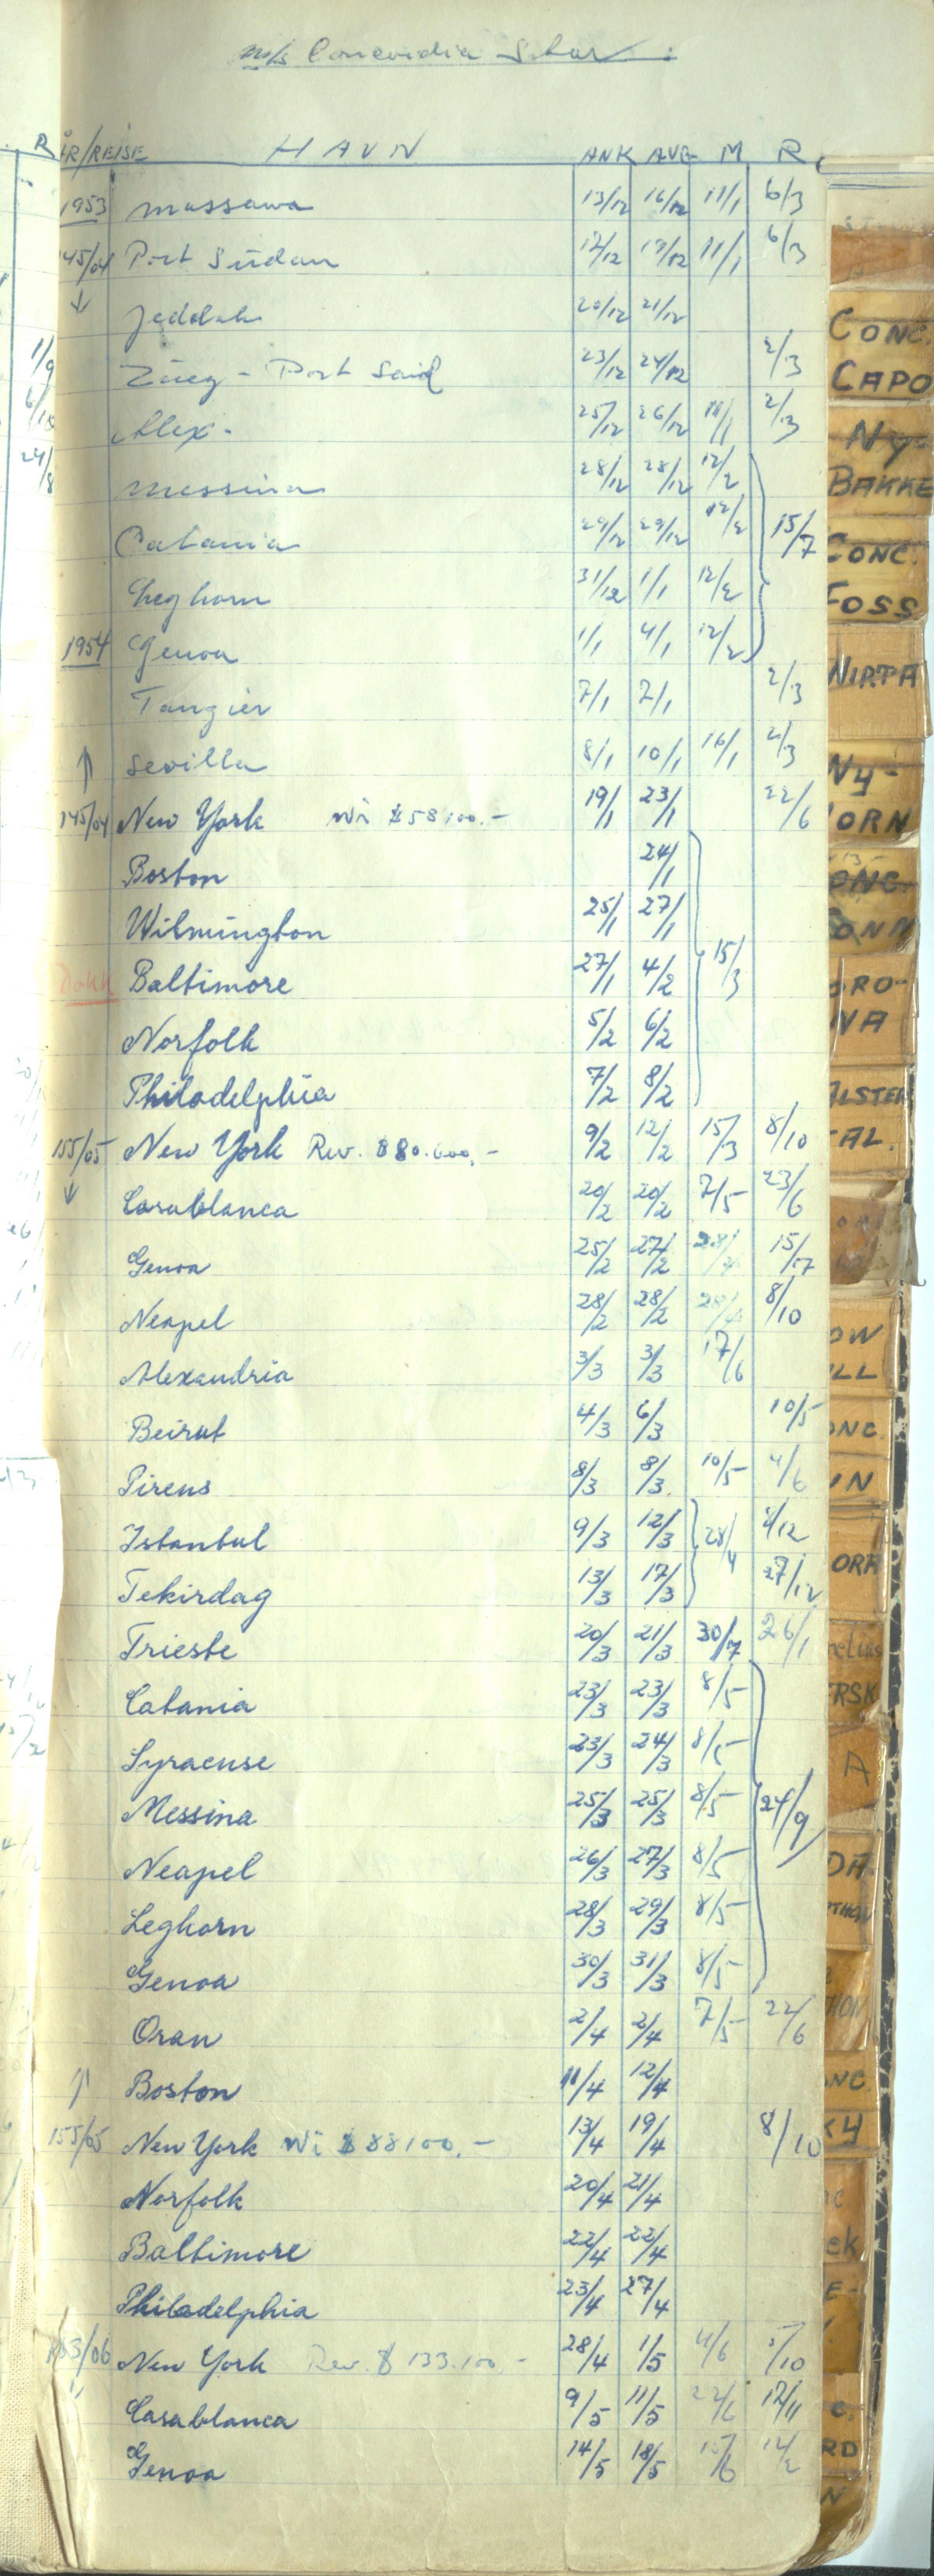 m/s Concordia Star:
ÅR/REISE HAVN ANK AVG M R
1953 Massawa 13/12 16/12 11/1 6/3
145/04 Port Sudan 17/12 19/12 11/1 6/3
↓ Jeddah 20/12 21/12
Zueg - Port Said 23/12 24/12 2/3
Alex. 25/12 26/12 2/3
Messina 28/12 28/12 12/2
Catania 29/12 29/12 12/2 15/7
Leghorn 31/12 1/1 12/2
1954 Genoa 1/1 4/1 12/2
Tangier 7/1 7/1 2/3
↑ Sevilla 8/1 10/1 16/1 2/3
145/04 New York Wi $58100.- 19/1 23/1 22/6
Boston 24/1
Wilmington 25/1 27/1
Dokk Baltimore 27/1 4/2 15/3
Norfolk 5/2 6/2
Philadelphia 7/2 8/2
155/05 New York Rev. $80.000,- 9/2 12/2 15/3 8/10
↓ Casablanca 20/2 20/2 7/5 23/6
Genoa 25/2 27/2 15/7
Neapel 28/2 28/2 8/10
Alexandria 3/3 3/3 17/6
Beirut 4/3 6/3 10/5
Pireus 8/3 8/3 10/5 4/6
Istanbul 9/3 12/3 28/4 2/12
Tekirdag 13/3 17/3 27/12
Trieste 20/3 21/3 30/7 26/1
Catania 23/3 23/3 8/5
Syracuse 23/3 24/3 8/5
Messina 25/3 25/3 8/5 24/9
Neapel 26/3 27/3 8/5
Leghorn 28/3 29/3 8/5
Genoa 30/3 31/3 8/5
Oran 2/4 2/4 7/5 22/6
↑ Boston 11/4 12/4
155/05 New York Wi $88100,- 13/4 19/4 8/10
Norfolk 20/4 21/4
Baltimore 22/4 22/4
Philadelphia 23/4 27/4
163/06 New York Rev. $133.100- 28/4 1/5 4/6 5/10
Casablanca 9/5 11/5 22/6 12/11
Genoa 14/5 18/5 14/2
CONC.
CAPO
NY-
BAKKE
CONC.
FOSS
NY-
ALSTER
TAL.